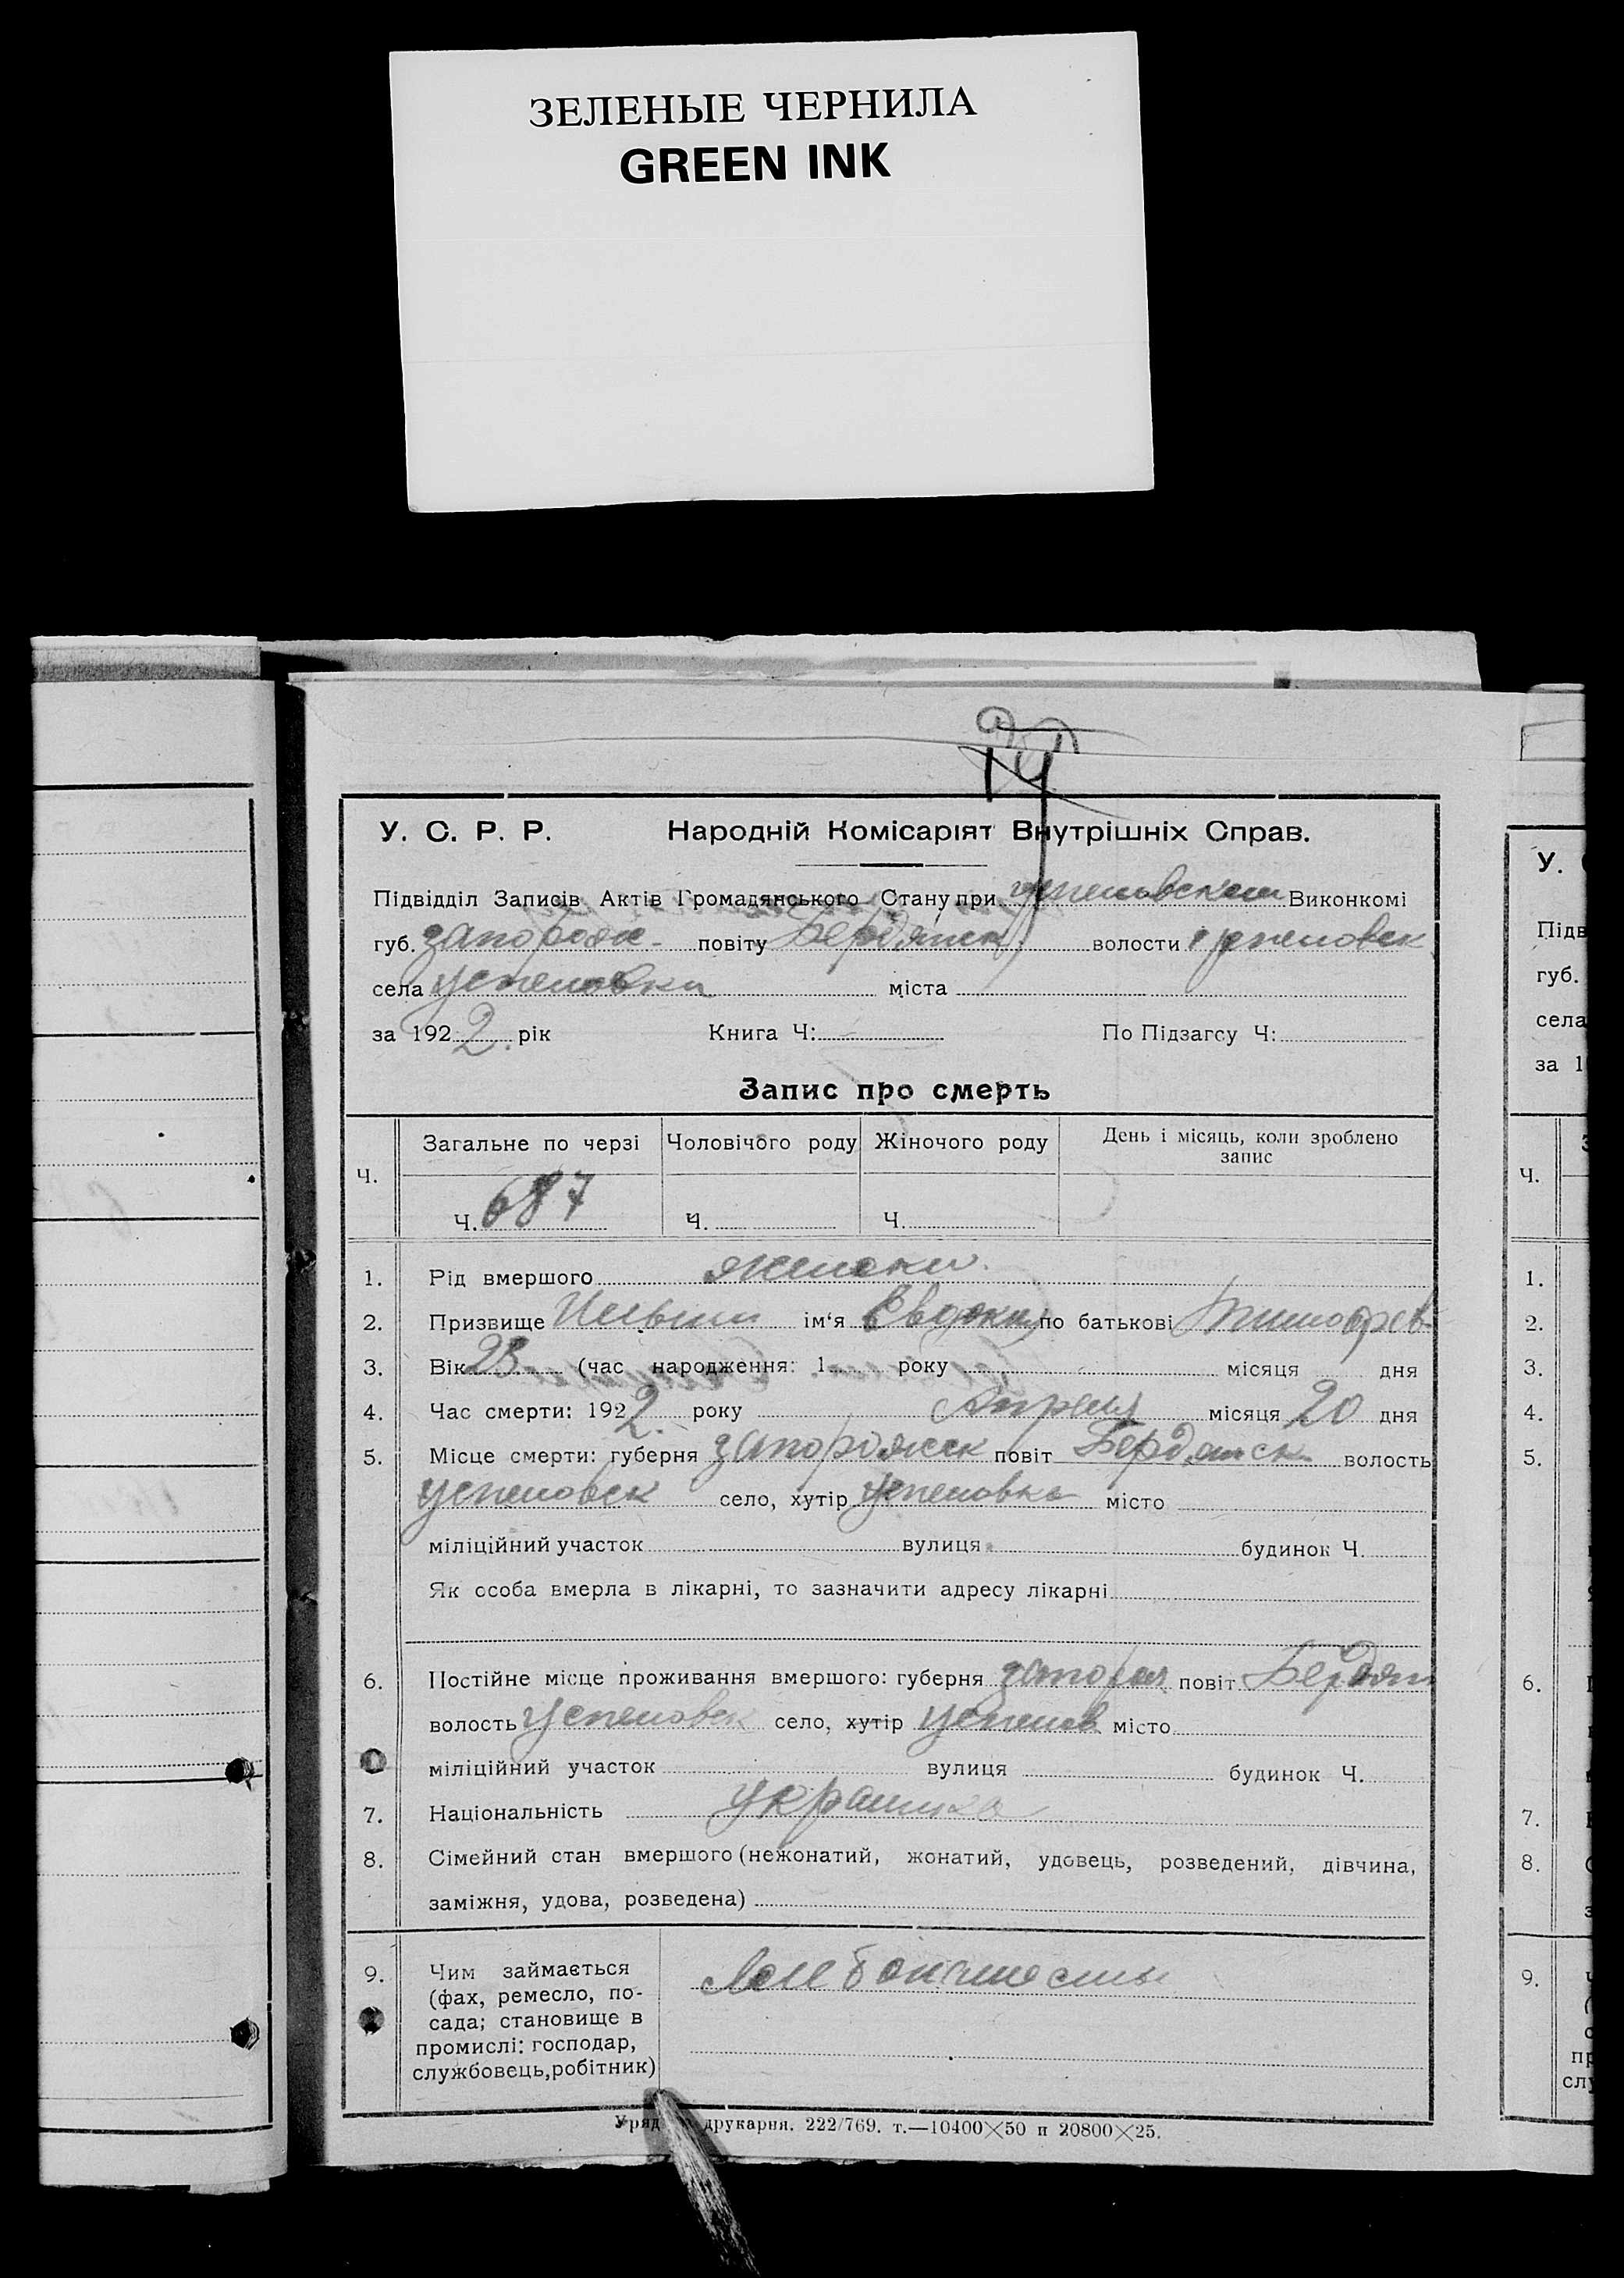 ЗЕЛЕНЫЕ ЧЕРНИЛА
GREEN INK
У. С. Р. Р. Народній Комісаріят Внутрішніх Справ.
Підвідділ Записів Актів Громадянського Стану при Виконкомі
губ. запорож- повіту Бердянск волости успеновск
села успеновки міста
за 1922. рік Книга Ч: По Підзагсу Ч:
Запис про смерть
Ч. Загальне по черзі Чоловічого роду Жіночого роду День і місяць, коли зроблено
запис
Ч. 687 Ч. Ч.
1. Рід вмершого женски.
2. Призвище ім'я Евдоки по батькові Тимофеев
3. Вік 23 (час народження: 1 року місяця дня
4. Час смерти: 1922. року Апреля місяця 20 дня
5. Місце смерти: губерня запорожск повіт Бердянск волость
успеновск село, хутір успеновка місто
міліційний участок вулиця будинок Ч.
Як особа вмерла в лікарні, то зазначити адресу лікарні
6. Постійне місце проживання вмершого: губерня запорож повіт Бердян
волость успеновск село, хутір успенов місто
міліційний участок вулиця будинок Ч.
7. Національність
8. Сімейний стан вмершого (нежонатий, жонатий, удовець, розведений, дівчина,
заміжня, удова, розведена)
9. Чим займається
(фах, ремесло, по-
сада; становище в
промислі: господар,
службовець, робітник)
друкарня. 222/769. т.—10400×50 и 20800×25.